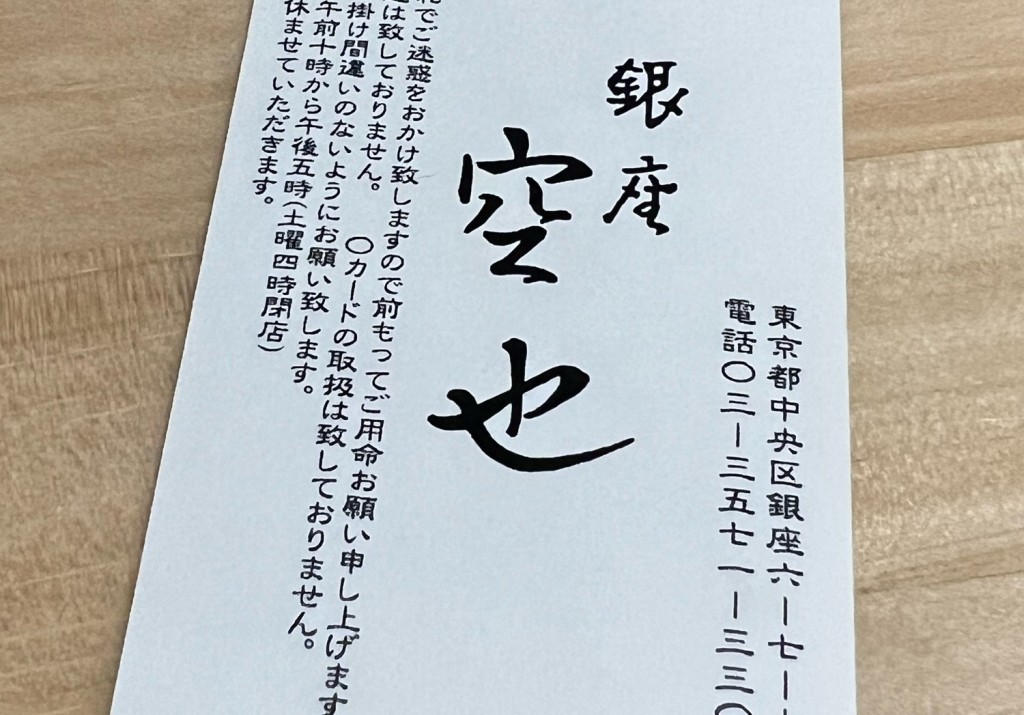 東京都中央区銀座六ー七ー
電話〇三ー三五七一ー三三〇
銀座
空也
でご迷惑をおかけ致しますので前もってご用命お願い申し上げます
は致しておりません。 〇カードの取扱は致しておりません。
掛け間違いのないようにお願い致します。
午前十時から午後五時(土曜四時閉店)
休ませていただきます。